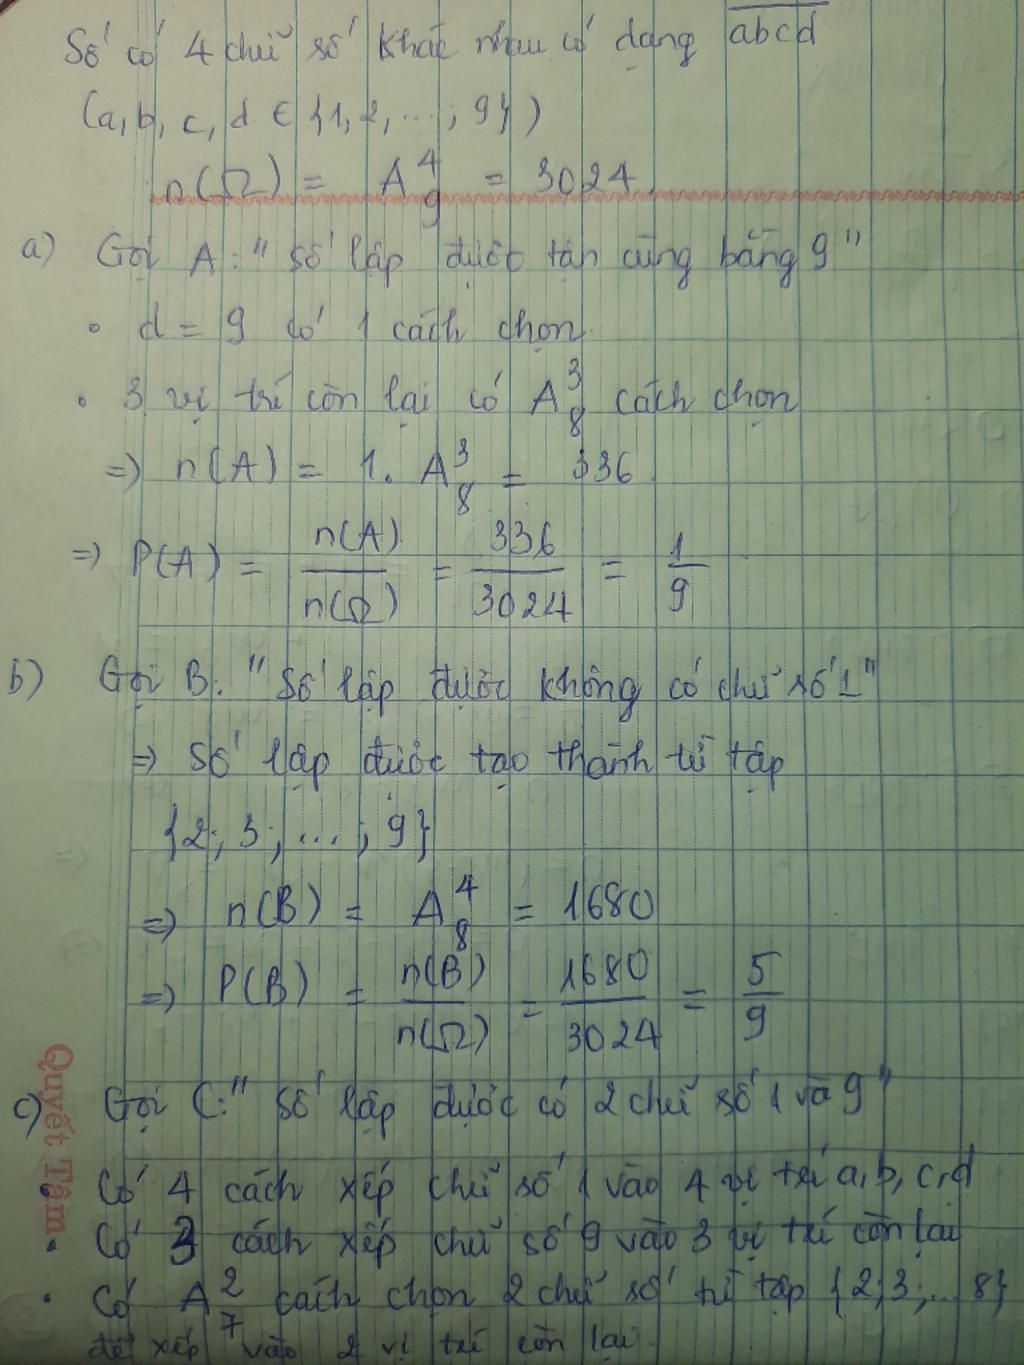 Số có 4 chữ số khác nhau có dạng abcd
(a, b, c, d ∈ {1, 2, ...; 9})
n(Ω) = A⁴₉ = 3024
a) Gọi A: "Số lập được tận cùng bằng 9"
• d = 9 có 1 cách chọn
• 3 vị trí còn lại có A³₈ cách chọn
=> n(A) = 1. A³₈ = 336
=> P(A) = n(A)/n(Ω) = 336/3024 = 1/9
b) Gọi B: "Số lập được không có chữ số 1"
=> Số lập được tạo thành từ tập
{2; 3; ...; 9}
=> n(B) = A⁴₈ = 1680
=> P(B) = n(B)/n(Ω) = 1680/3024 = 5/9
c) Gọi C: "Số lập được có 2 chữ số 1 và 9"
• Có 4 cách xếp chữ số 1 vào 4 vị trí a, b, c, d
• Có 3 cách xếp chữ số 9 vào 3 vị trí còn lại
• Có A²₇ cách chọn 2 chữ số từ tập {2; 3; ... 8}
để xếp vào 2 vị trí còn lại.
Quyết Tâm